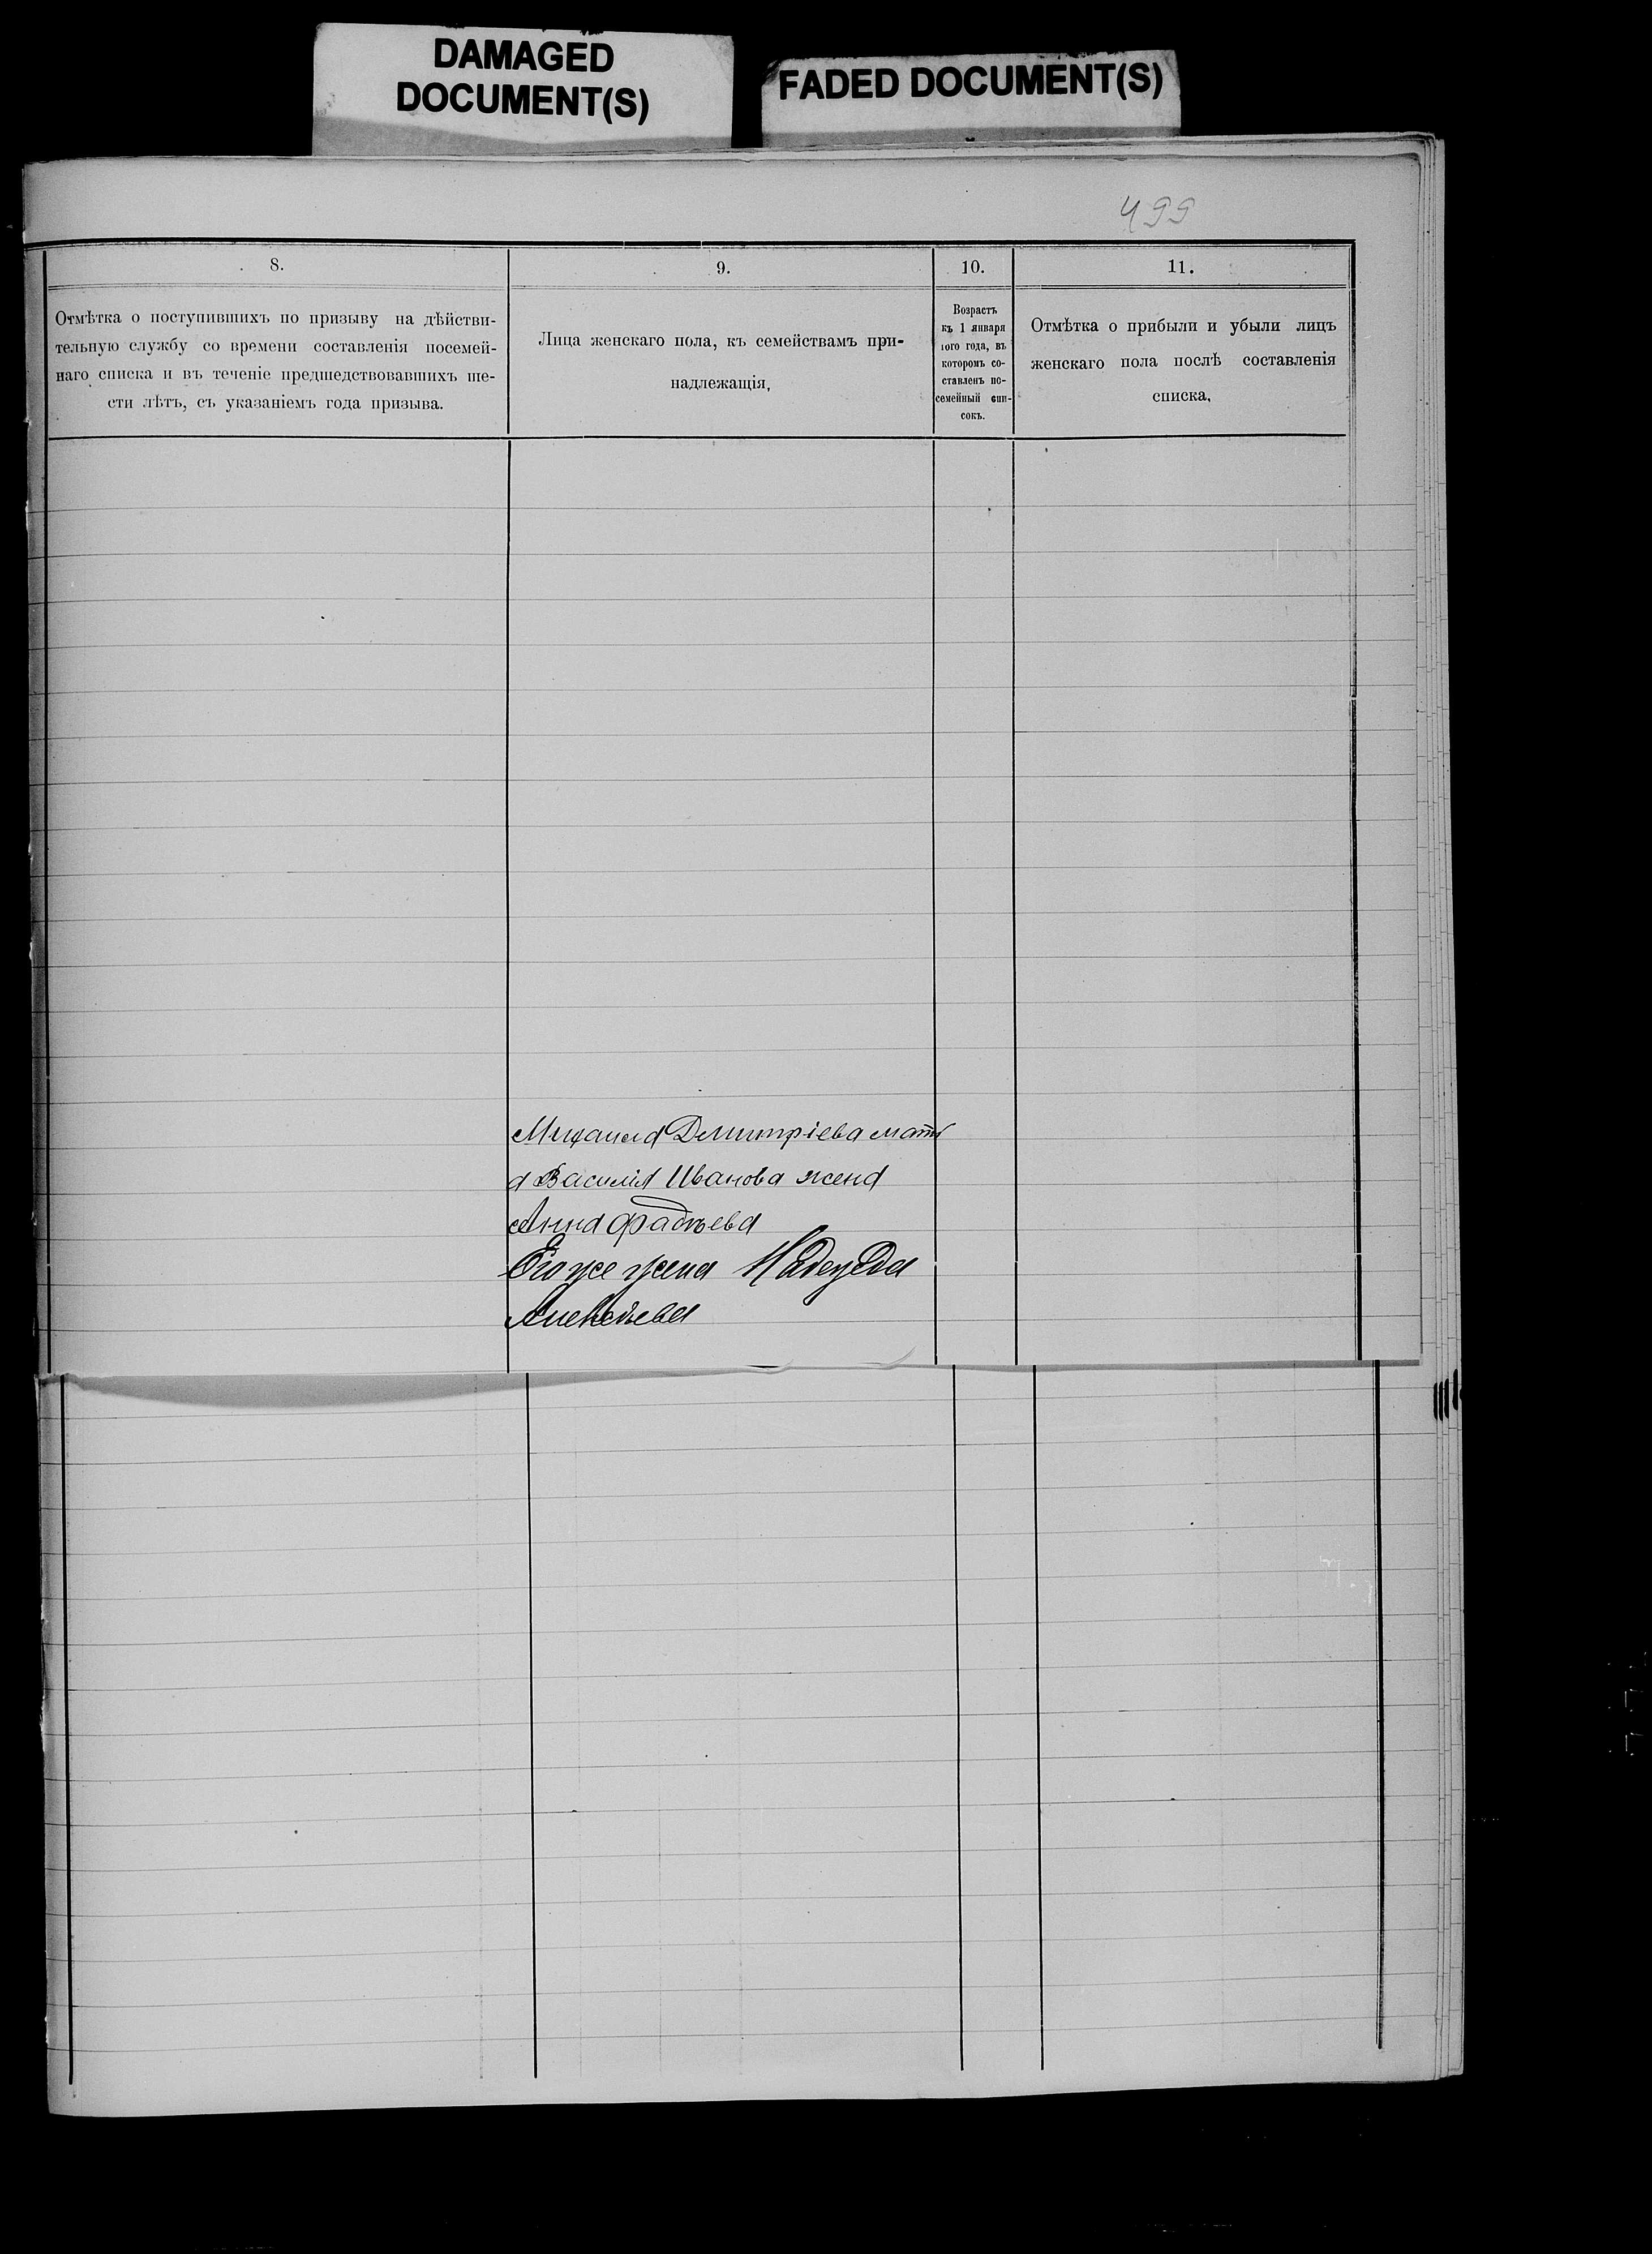 DAMAGED
DOCUMENT(S)
FADED DOCUMENT(S)
499
8.
9.
10.
11.
Отмѣтка о поступившихъ по призыву на дѣйстви-
тельную службу со времени составленія посемей-
наго списка и въ теченіе предшедствовавшихъ ше-
сти лѣтъ, съ указаніемъ года призыва.
Лица женскаго пола, къ семействамъ при-
надлежащія,
Возрастъ
къ 1 января
того года, въ
которомъ со-
ставленъ по-
семейный спи-
сокъ.
Отмѣтка о прибыли и убыли лицъ
женскаго пола послѣ составленія
списка,
Михаила Дмитріева мать
а Василія Иванова жена
Анна Фадѣева
Его же жена Надежда
Алексѣева